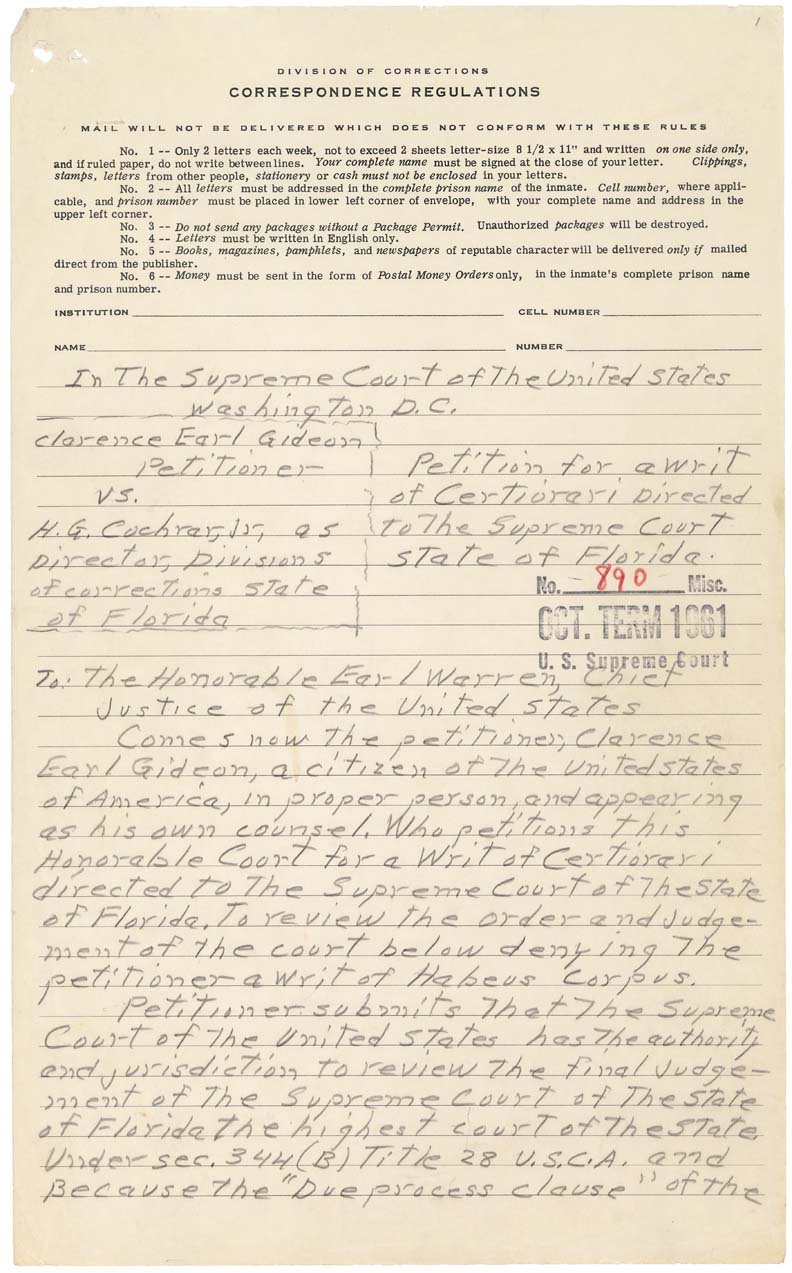 1
DIVISION OF CORRECTIONS
CORRESPONDENCE REGULATIONS
MAIL WILL NOT BE DELIVERED WHICH DOES NOT CONFORM WITH THESE RULES
No. 1 -- Only 2 letters each week, not to exceed 2 sheets letter-size 8 1/2 x 11" and written on one side only,
and if ruled paper, do not write between lines. Your complete name must be signed at the close of your letter. Clippings,
stamps, letters from other people, stationery or cash must not be enclosed in your letters.
No. 2 -- All letters must be addressed in the complete prison name of the inmate. Cell number, where appli-
cable, and prison number must be placed in lower left corner of envelope, with your complete name and address in the
upper left corner.
No. 3 -- Do not send any packages without a Package Permit. Unauthorized packages will be destroyed.
No. 4 -- Letters must be written in English only.
No. 5 -- Books, magazines, pamphlets, and newspapers of reputable character will be delivered only if mailed
direct from the publisher.
No. 6 -- Money must be sent in the form of Postal Money Orders only, in the inmate's complete prison name
and prison number.
INSTITUTION CELL NUMBER
NAME NUMBER
In The Supreme Court of The United States
Washington D.C.
Clarence Earl Gideon
Petitioner
vs.
H.G. Cochran, Jr, as
Director, Divisions
of corrections State
of Florida
Petition for a writ
of Certiorari Directed
to The Supreme Court
State of Florida.
No. 890 Misc.
OCT. TERM 1961
U. S. Supreme Court
To: The Honorable Earl Warren, Chief
Justice of the United States
Comes now The petitioner, Clarence
Earl Gideon, a citizen of The United states
of America, in proper person, and appearing
as his own counsel. Who petitions this
Honorable Court for a Writ of Certiorari
directed to The Supreme Court of The State
of Florida. To review the order and Judge-
ment of the court below denying The
petitioner a writ of Habeus Corpus.
Petitioner submits That The Supreme
Court of The United States has The authority
and jurisdiction to review The final Judge-
ment of The Supreme Court of The State
of Florida the highest court of The State
Under sec. 344(B) Title 28 U.S.C.A. and
Because the "Due process clause" of the